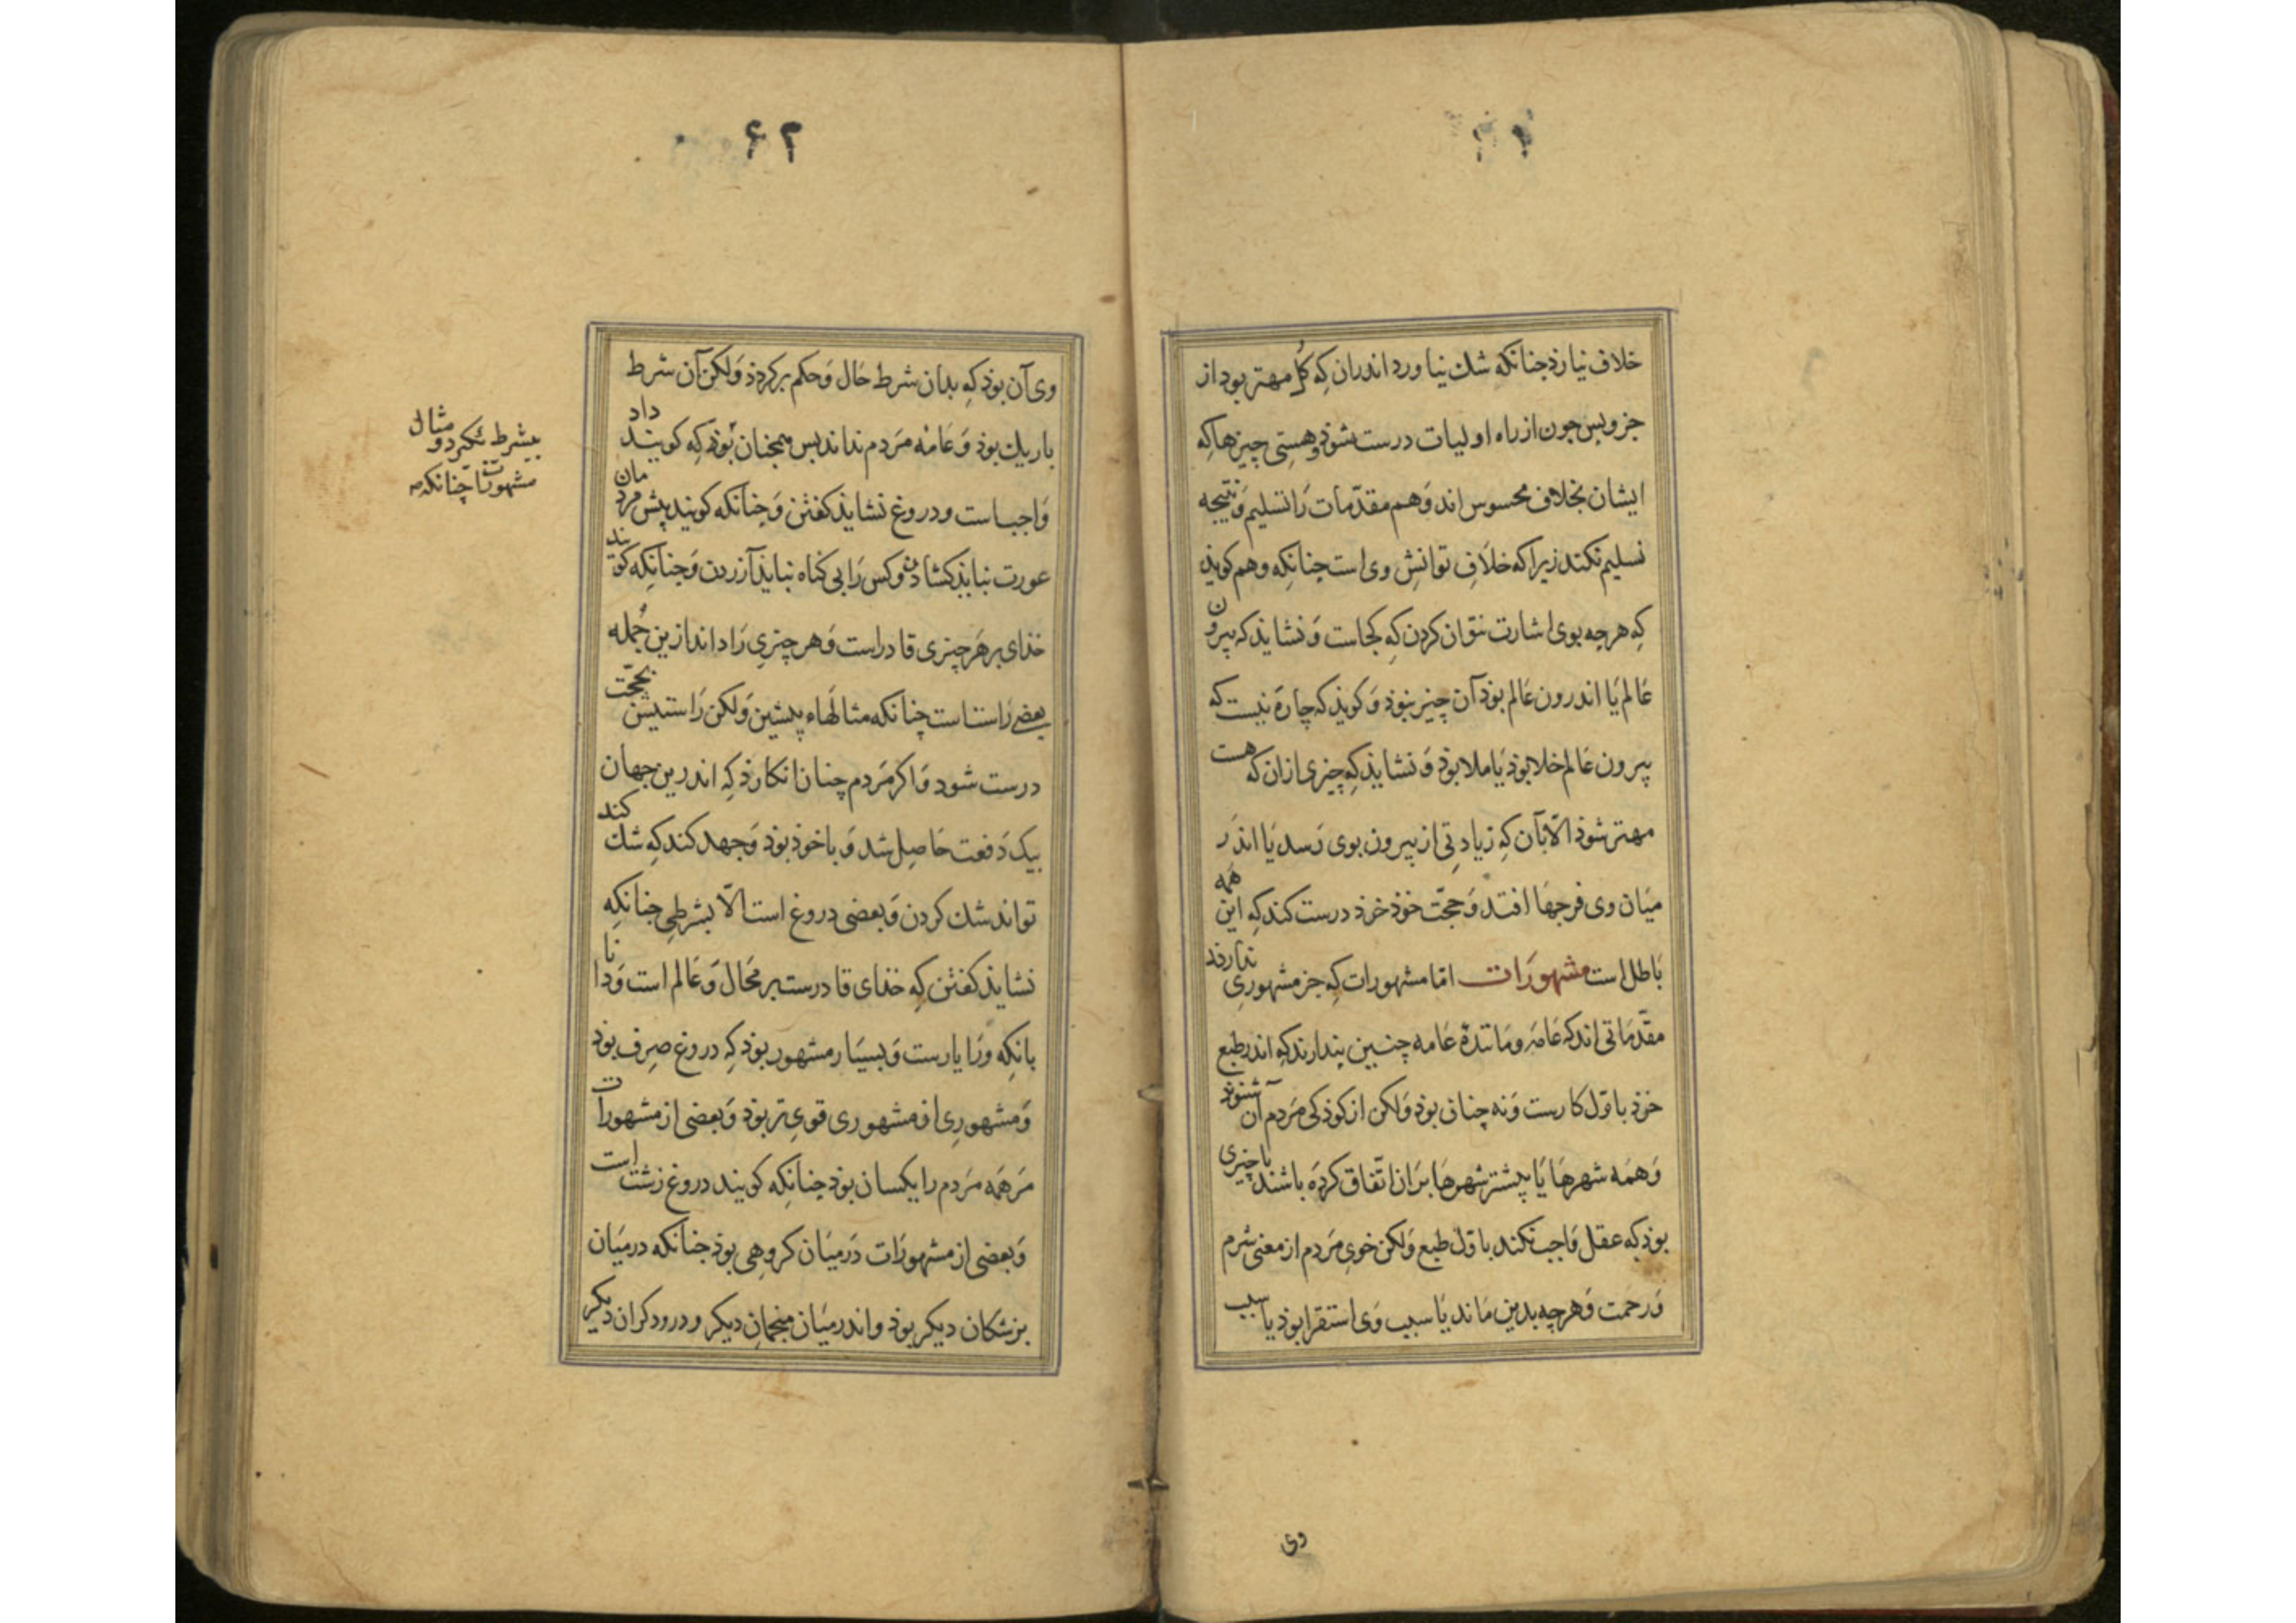 خلاف نیارذ جنانکه شك نیاورد اندران کِه کُل مهتر بود از
جزو بس جون از راه اولیات درست شوذ وهستِی چیزها که
ایشان بخلاف محسوس اند وَهم مقدّمات رَا تسلیم وَ نتیجه
تسلیم نکند زیرا که خلاَفِ توانشِ وی است جنانکِه وهم کویذ
کِه هرجه بوی اشارت نتوان کردن کِه کجاست وَ نشایذ که بیرون
عَالم یَا اندرون عَالم بوذ آن چیز نبوذ وَ کویذ که چارَه نیست که
بیرون عَالم خلا بوذ یَا ملا بوذ وَ نشایذ کِه چیزی ازان که هست
مهتر شوذ الّا بآن کِه زیادتِی از بیرون بوی رَسد یَا اندَر
میَان وی فرجهَا افتد وَ حجّت خوذ خرذ درست کند کِه این همه
بَاطل است مشهورَات امّا مشهورات کِه جز مشهورِی ندارند
مقدّمَاتی اند که عَامَه ومَاننده عَامه چنین بندارند کِه اندر طبع
خرذ باوّل کارست وَ نه چنان بوذ وَلکن از کوذکی مَردم آن شنوذ
وَهمَه شهرهَا یَا بیشتر شهرهَا بَران اتّفاق کردَه باشند یا جیزی
بوذ که عقل وَاجب نکند باوّل طبع وَلکن خویِ مَردم از معنی شرم
وَرحمت وَهرچه بدین مَاند یَا سبب وَی استقرا بوذ یا سبب
وی
۶۲
وی آن بوذ کِه بدان شرط حَال وَحکم برکردذ وَلکن آن شرط
باریك بوذ وَ عَامَه مَردم نداند بس همجنان بُوَذ کِه کویند داد
وَاجب است و دروغ نشایذ کفتن وَ جنانکه کویند بیش مردمان
عورت نبایذ کشاذن وکس رَا بی کناه نبایذ آزردن وَجنانِکه کویند
خذای بر هَر چیزی قادر است وَ هر چیزی رَا داند ازین جُمله
بعضی رَاست است چنانکه مثالهَاء بیشین وَلکن رَاستیش بحجّت
درست شود وَ اکر مَردم چنان انکارذ کِه اندرین جهان
بیک دَفعت حَاصل شد وَ با خوذ بوذ وَجهد کند کِه شك کند
تواند شك کردن وَ بعضی دروغ است الّا بشرطی جنانکِه
نشایذ کفتن کِه خذای قادرست بر مَحَال وَ عَالم است وَ دانا
بانکِه ورَا یارست وَ بسیَار مشهور بوذ کِه دروغ صِرف بوذ
وَ مشهورِی از مشهوری قوی تر بوذ وَ بعضی از مشهورات
مَر همَه مَردم را یکسان بوذ جنانکِه کویند دروغ زشت است
وَبعضی از مشهورَات دَرمیَان کروهی بوذ جنانکه درمیَان
بزشکان دیکر بوذ و اندر میَان منجمانِ دیکر و درودکران دیکر
مثال
بیشرط نکردو
مشهورتا چنانکه